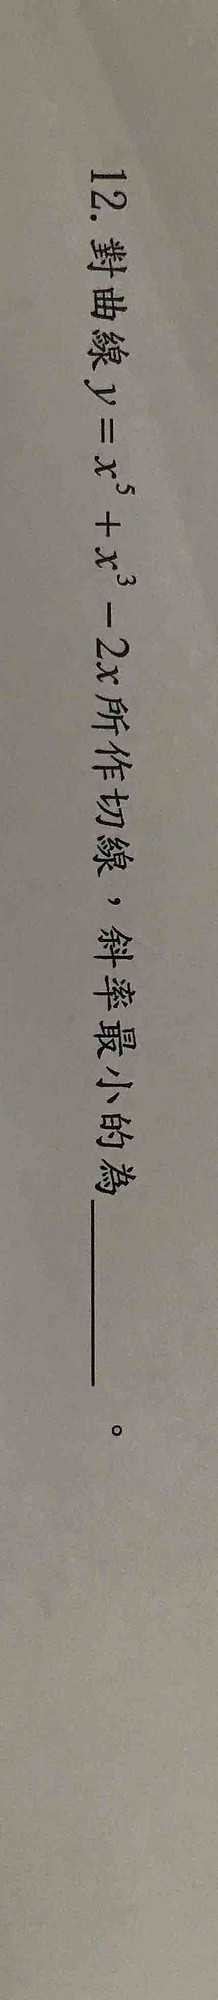 12. 對曲線 y = x⁵ + x³ − 2x 所作切線，斜率最小的為______。